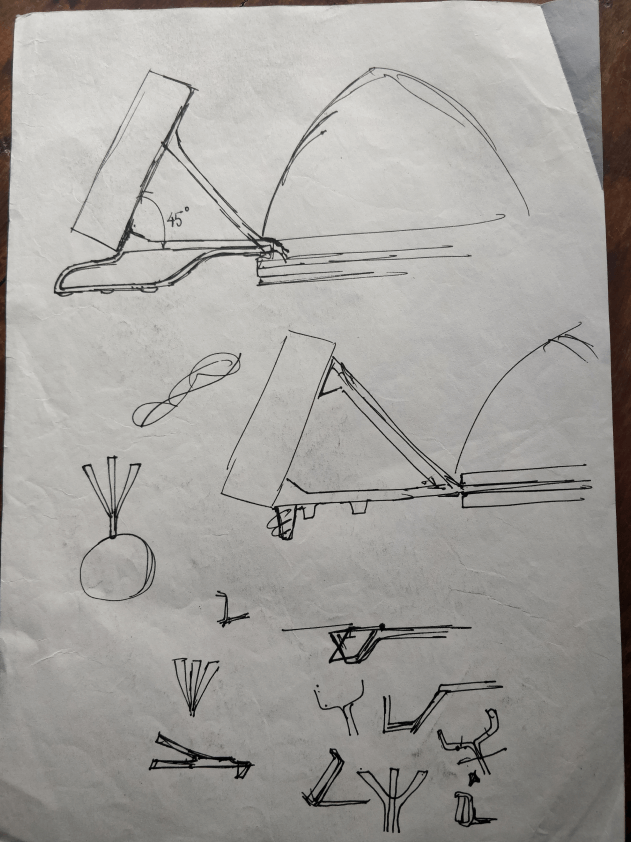 45°